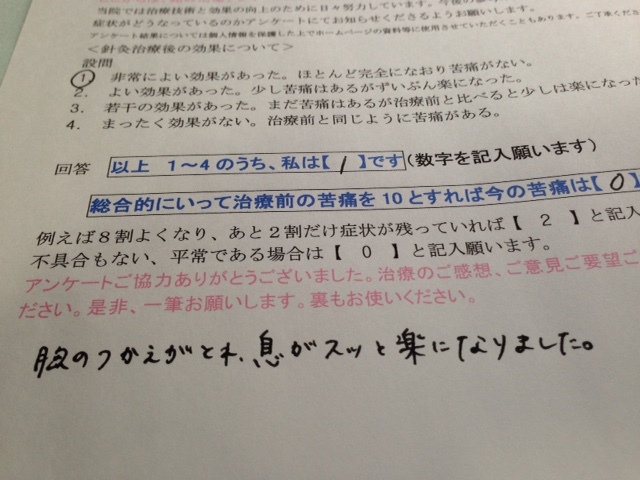 当院では治療技術と効果の向上のために日々努力しています。今後の
症状がどうなっているのかアンケートにてお知らせくださるようお願いします。
アンケート結果については個人情報を保護した上でホームページの資料等に使用させていただくこともあります。ご了承くださ
<針灸治療後の効果について>
設問
1. 非常によい効果があった。ほとんど完全になおり苦痛がない。
2. よい効果があった。少し苦痛はあるがずいぶん楽になった。
3. 若干の効果があった。まだ苦痛はあるが治療前と比べると少しは楽になった
4. まったく効果がない。治療前と同じように苦痛がある。
回答 以上 1~4のうち、私は【 1 】です(数字を記入願います)
総合的にいって治療前の苦痛を10とすれば今の苦痛は【 0 】
例えば8割よくなり、あと2割だけ症状が残っていれば【 2 】と記入
不具合もない、平常である場合は【 0 】と記入願います。
アンケートご協力ありがとうございました。治療のご感想、ご意見ご要望ご
ださい。是非、一筆お願いします。裏もお使いください。
胸のつかえがとれ、息がスッと楽になりました。